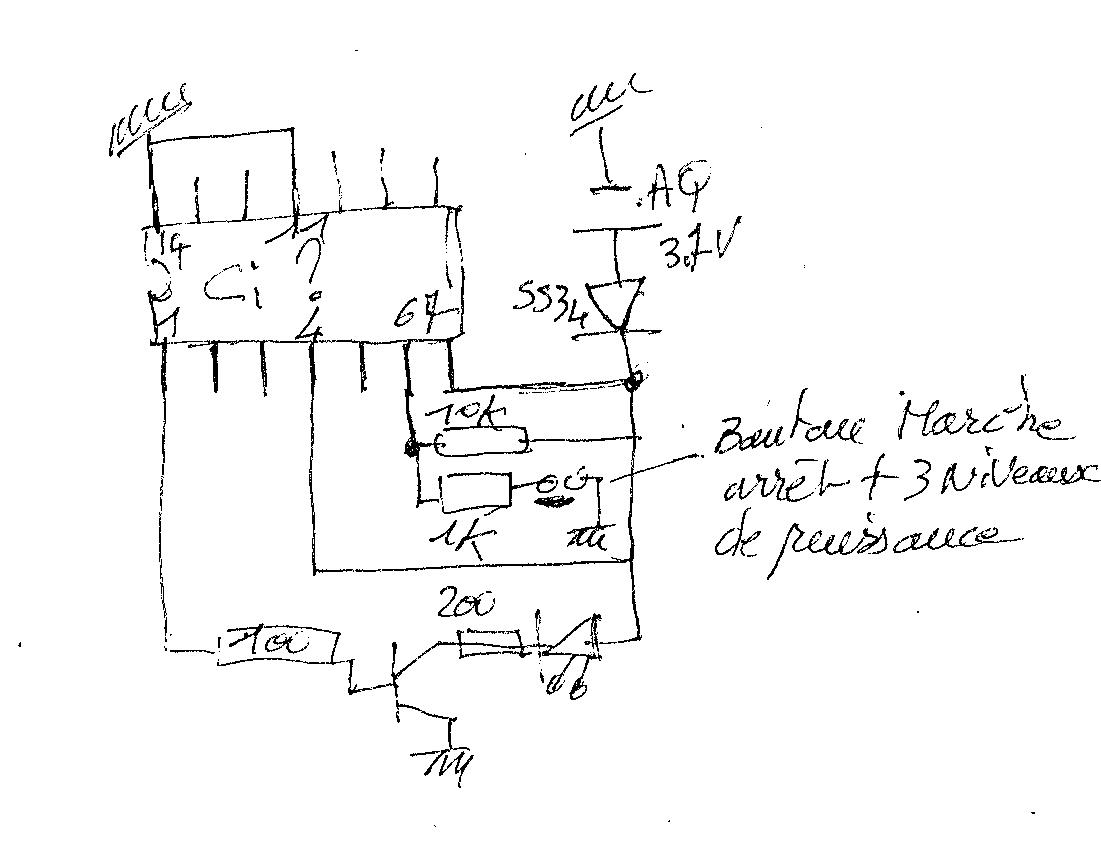 .AQ
3.7V
SS34
14 11
Ci ?
1 4 6 7
10K
1K
Bouton Marche
arrêt + 3 Niveaux
de puissance
200
100